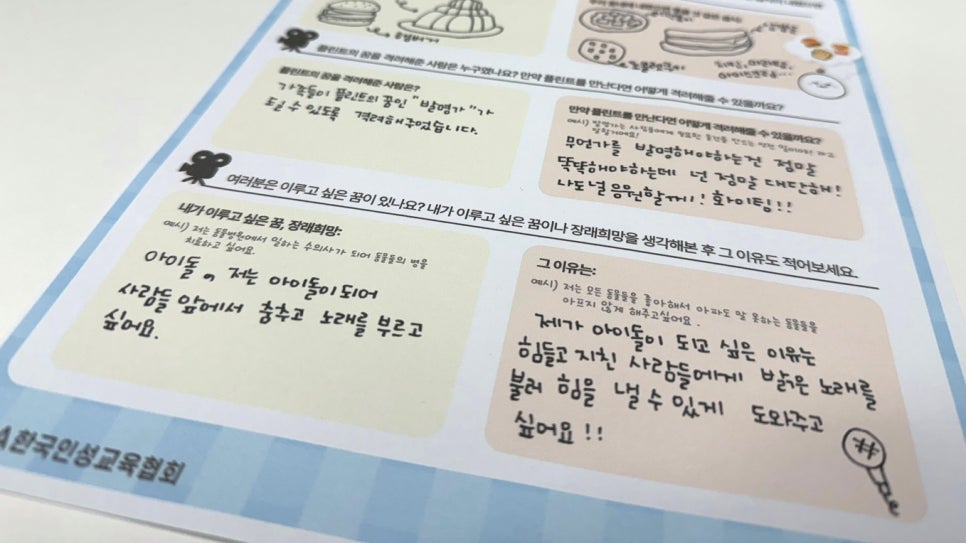 햄버거
초콜렛쿠키
플린트의 꿈을 격려해준 사람은 누구였나요? 만약 플린트를 만난다면 어떻게 격려해줄 수 있을까요?
플린트의 꿈을 격려해준 사람은?
가족들이 플린트의 꿈인 "발명가"가
될 수 있도록 격려해주었습니다.
만약 플린트를 만난다면 어떻게 격려해줄 수 있을까요?
예시) 발명가는 사람들에게 필요한 물건을 만드는 멋진 일이야! 라고
말할거예요!
무언가를 발명해야하는건 정말
똑똑해야하는데 넌 정말 대단해!
나도 널 응원할께!! 화이팅!!
여러분은 이루고 싶은 꿈이 있나요? 내가 이루고 싶은 꿈이나 장래희망을 생각해본 후 그 이유도 적어보세요.
내가 이루고 싶은 꿈, 장래희망:
예시) 저는 동물병원에서 일하는 수의사가 되어 동물들의 병을
치료하고 싶어요.
아이돌, 저는 아이돌이 되어
사람들 앞에서 춤추고 노래를 부르고
싶어요.
그 이유는:
예시) 저는 모든 동물들을 좋아해서 아파도 말 못하는 동물들을
아프지 않게 해주고싶어요.
제가 아이돌이 되고 싶은 이유는
힘들고 지친 사람들에게 밝은 노래를
불러 힘을 낼 수 있게 도와주고
싶어요!!
한국인성교육협회